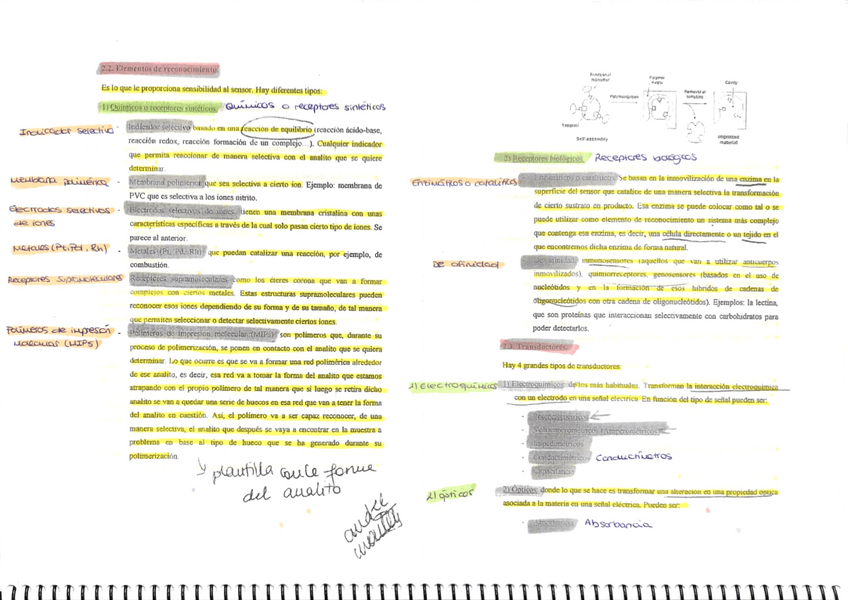 2.2. Elementos de reconocimiento.
Es lo que le proporciona sensibilidad al sensor. Hay diferentes tipos:
1) Químicos o receptores sintéticos. Químicos o receptores sintéticos
Indicador selectivo - Indicador selectivo basado en una reacción de equilibrio (reacción ácido-base,
reacción redox, reacción formación de un complejo…). Cualquier indicador
que permita reaccionar de manera selectiva con el analito que se quiere
determinar.
Membrana polimérica - Membrana polimérica que sea selectiva a cierto ion. Ejemplo: membrana de
PVC que es selectiva a los iones nitrito.
Electrodos selectivos de iones - Electrodos selectivos de iones tienen una membrana cristalina con unas
características específicas a través de la cual solo pasan cierto tipo de iones. Se
parece al anterior.
Metales (Pt, Pd, Rh) - Metales (Pt, Pd, Rh) que puedan catalizar una reacción, por ejemplo, de
combustión.
Receptores supramoleculares - Receptores supramoleculares como los éteres corona que van a formar
complejos con ciertos metales. Estas estructuras supramoleculares pueden
reconocer esos iones dependiendo de su forma y de su tamaño, de tal manera
que permites seleccionar o detectar selectivamente ciertos iones.
Polímeros de impresión molecular (MIPS) - Polímeros de impresión molecular (MIPs) son polímeros que, durante su
proceso de polimerización, se ponen en contacto con el analito que se quiera
determinar. Lo que ocurre es que se va a formar una red polimérica alrededor
de ese analito, es decir, esa red va a tomar la forma del analito que estamos
atrapando con el propio polímero de tal manera que si luego se retira dicho
analito se van a quedar una serie de huecos en esa red que van a tener la forma
del analito en cuestión. Así, el polímero va a ser capaz reconocer, de una
manera selectiva, el analito que después se vaya a encontrar en la muestra a
problema en base al tipo de hueco que se ha generado durante su
polimerización.
plantilla con la forma
del analito
Functional monomer
Template
Self-assembly
Polymerization
Removal of template
Cavity
Imprinted material
2) Receptores biológicos. Receptores biológicos
Enzimáticos o catalíticos - Enzimáticos o catalíticos se basan en la inmovilización de una enzima en la
superficie del sensor que catalice de una manera selectiva la transformación
de cierto sustrato en producto. Esa enzima se puede colocar tal cual o se
puede utilizar como elemento de reconocimiento un sistema más complejo
que contenga esa enzima, es decir, una célula directamente o un tejido en el
que encontremos dicha enzima de forma natural.
De afinidad - De afinidad: inmunosensores (aquellos que van a utilizar anticuerpos
inmovilizados), quimiorreceptores, genosensores (basados en el uso de
nucleótidos y en la formación de esos híbridos de cadenas de
oligonucleótidos con otra cadena de oligonucleótidos). Ejemplos: la lectina,
que son proteínas que interaccionan selectivamente con carbohidratos para
poder detectarlos.
2.3. Transductores.
Hay 4 grandes tipos de transductores:
1) Electroquímicos 1) Electroquímicos: de los más habituales. Transforman la interacción electroquímica
con un electrodo en una señal eléctrica. En función del tipo de señal pueden ser:
- Potenciométricos
- Impedimétricos
- Conductimétricos Conductímetros
2) ópticos 2) Ópticos, donde lo que se hace es transformar una alteración en una propiedad óptica
asociada a la materia en una señal eléctrica. Pueden ser:
- Absorbancia Absorbancia